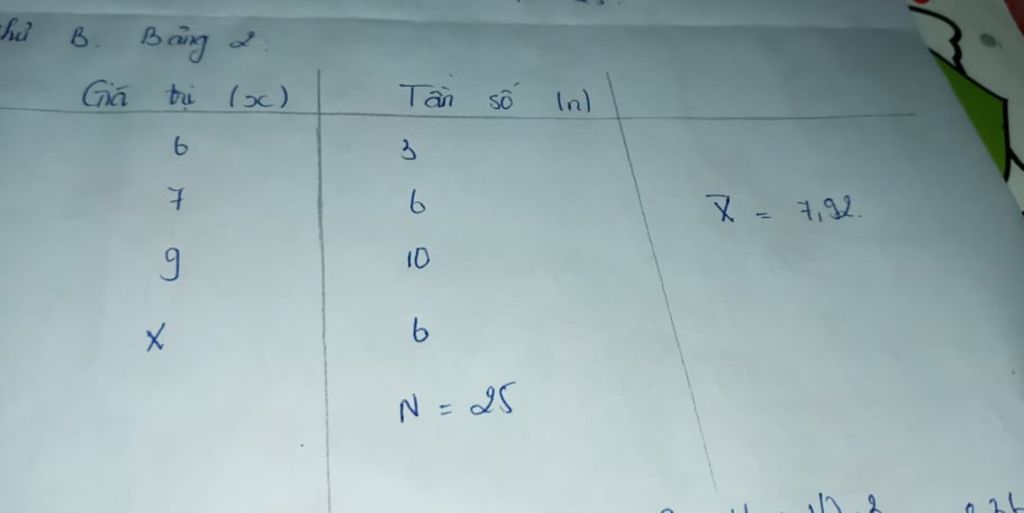 B. Bảng 2:
Giá trị (x) Tần số (n)
6 3
7 6
X̄ = 7,92.
9 10
x 6
N = 25